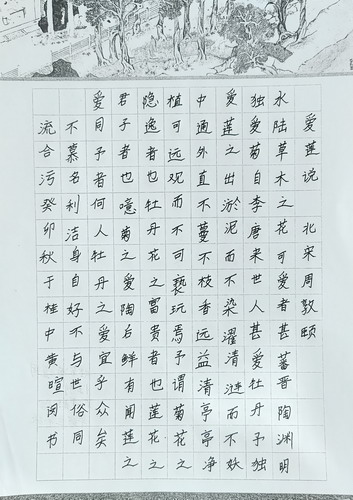 爱莲说 北宋周敦颐
水陆草木之花可爱者甚蕃晋陶渊明
独爱菊自李唐来世人甚爱牡丹予独
爱莲之出淤泥而不染濯清涟而不妖
中通外直不蔓不枝香远益清亭亭净
植可远观而不可亵玩焉予谓菊花之
隐逸者也牡丹之花富贵者也莲花之
君子者也噫菊之爱陶后鲜有闻莲之
爱同予者何人牡丹之爱宜乎众矣
不慕名利洁身自好不与世俗同
流合污癸卯秋于桂中黄暄书